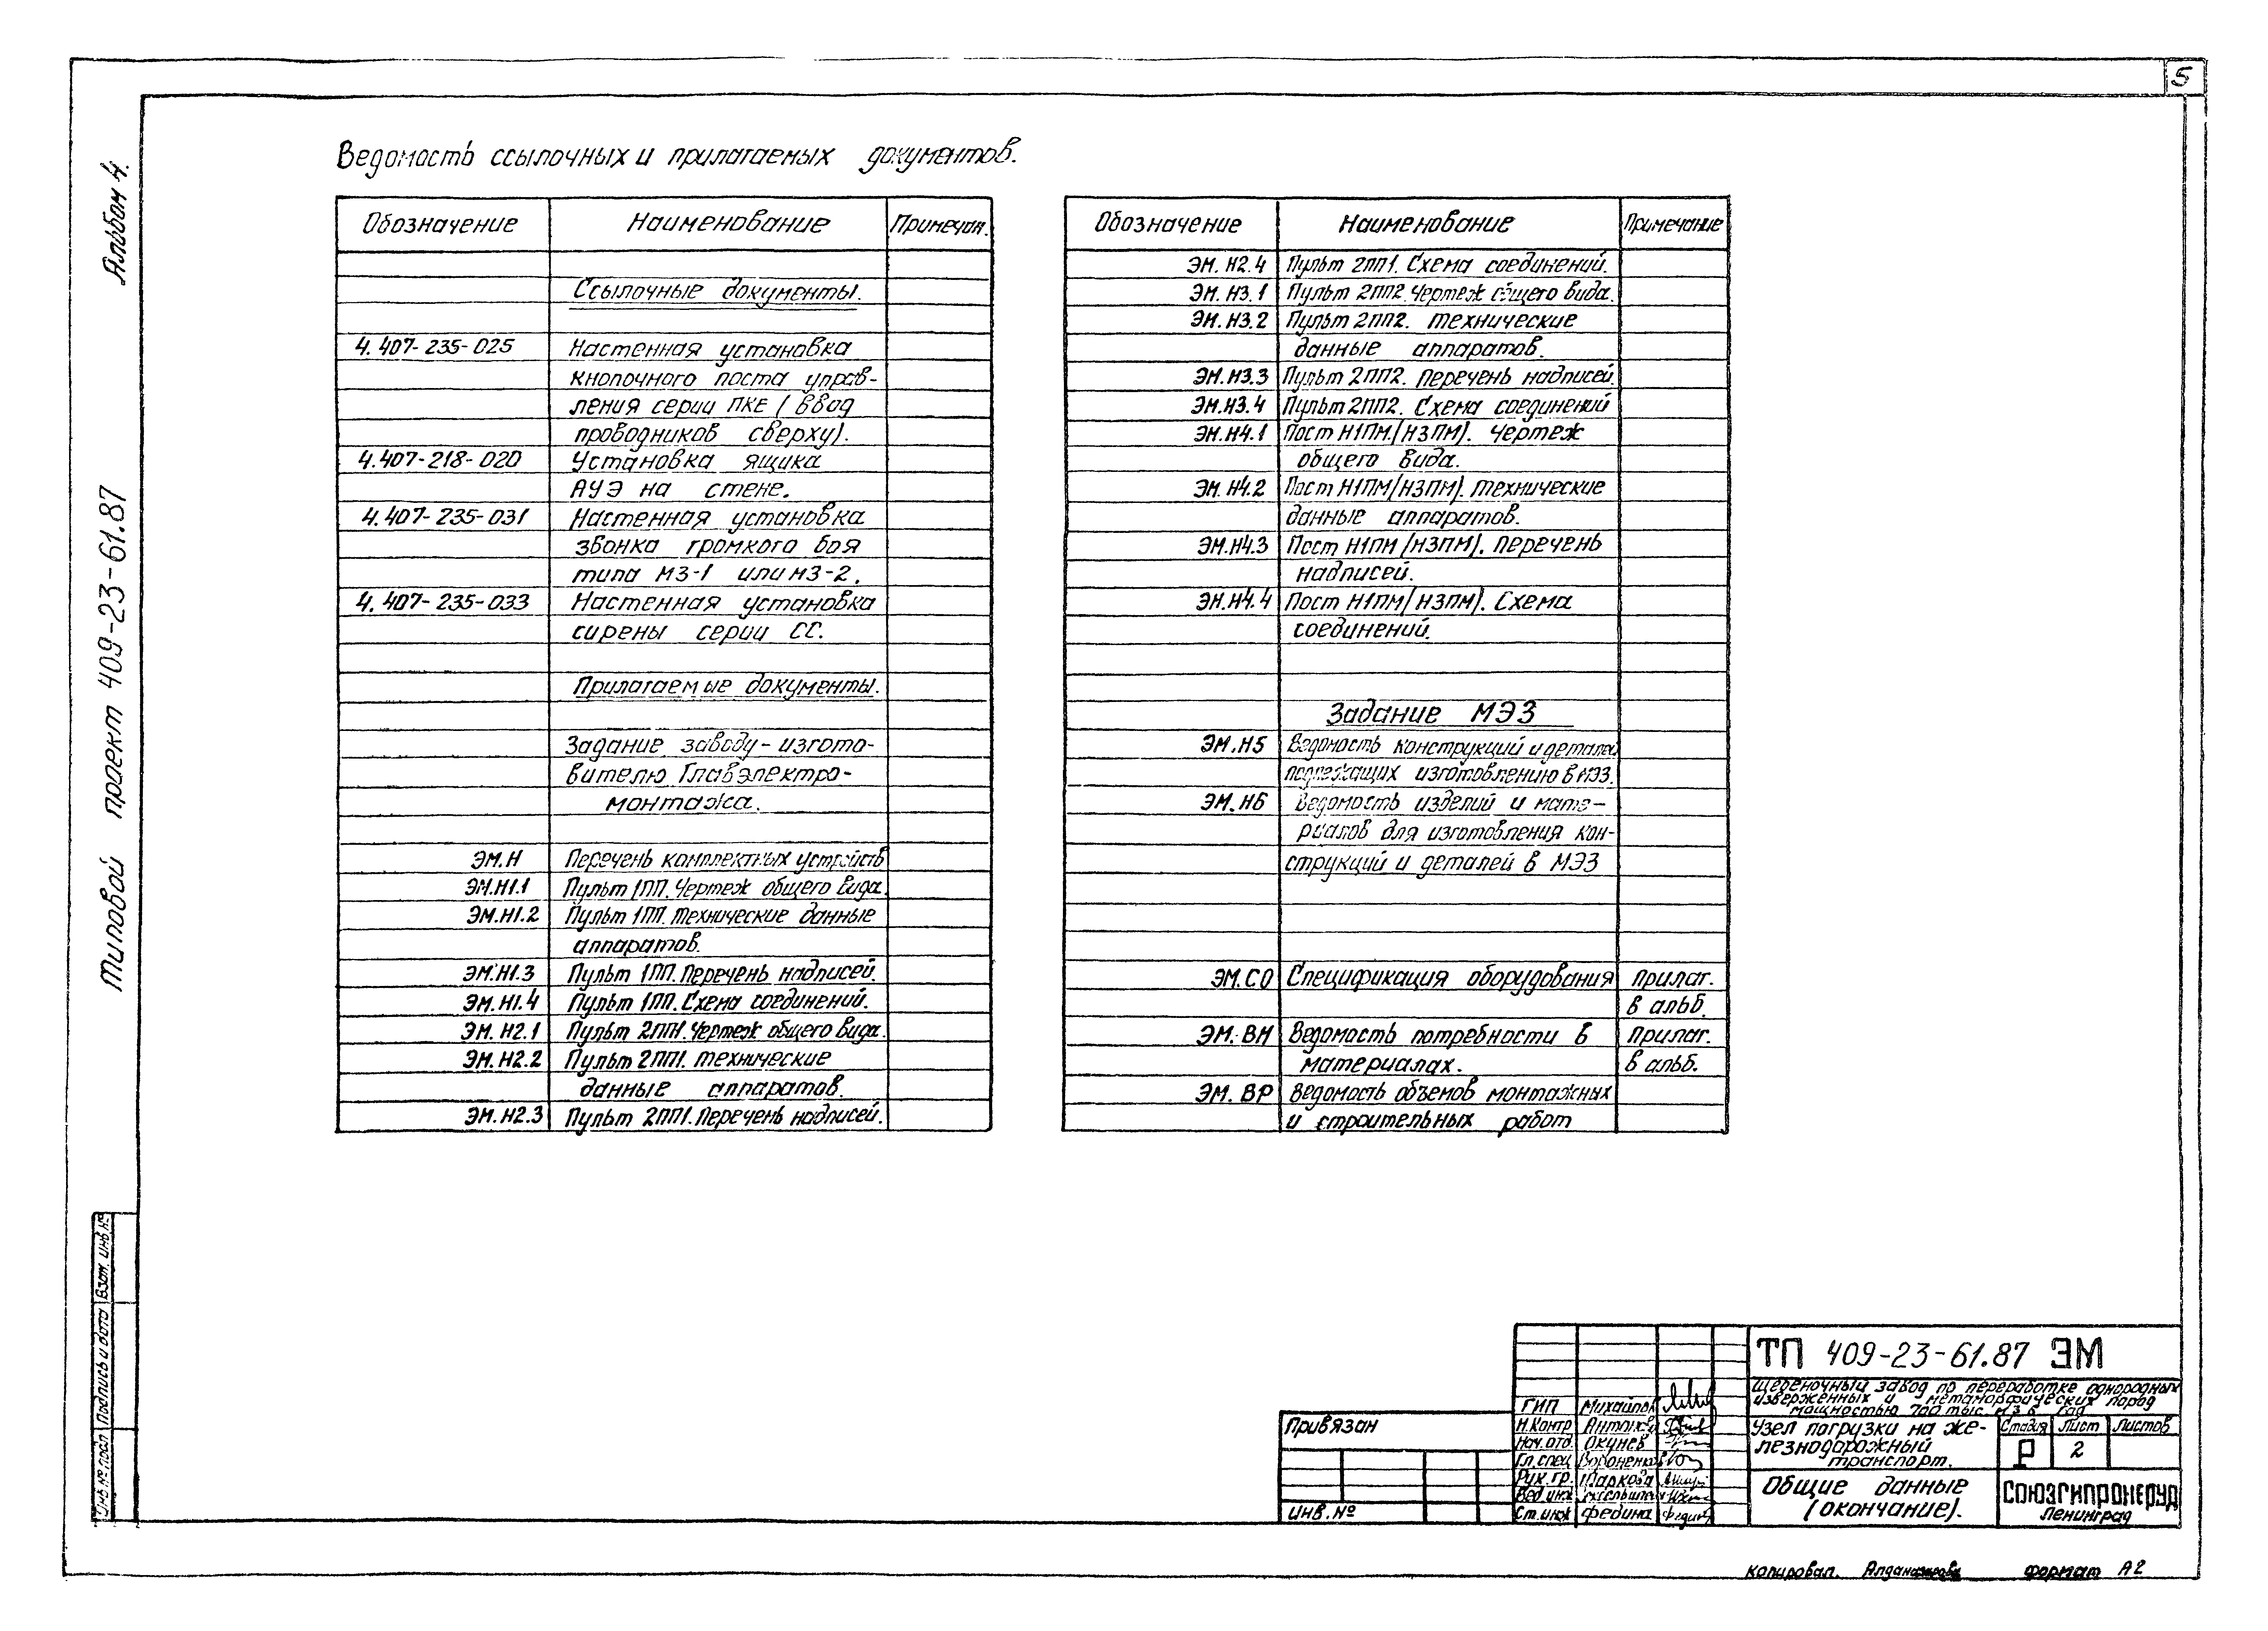 5
Альбом 4.
Типовой проект 409-23-61.87
Ведомость ссылочных и прилагаемых документов.
Обозначение Наименование Примечан.
Ссылочные документы.
4.407-235-025 Настенная установка
кнопочного поста управ-
ления серии ПКЕ (ввод
проводников сверху).
4.407-218-020 Установка ящика
АУЭ на стене.
4.407-235-031 Настенная установка
звонка громкого боя
типа МЗ-1 или МЗ-2.
4.407-235-033 Настенная установка
сирены серии СС.
Прилагаемые документы.
Задание заводу-изгото-
вителю Главэлектро-
монтажа.
ЭМ.Н Перечень комплектных устройств
ЭМ.Н1.1 Пульт 1ПП. Чертеж общего вида.
ЭМ.Н1.2 Пульт 1ПП. Технические данные
аппаратов.
ЭМ.Н1.3 Пульт 1ПП. Перечень надписей.
ЭМ.Н1.4 Пульт 1ПП. Схема соединений.
ЭМ.Н2.1 Пульт 2ПП1. Чертеж общего вида.
ЭМ.Н2.2 Пульт 2ПП1. Технические
данные аппаратов.
ЭМ.Н2.3 Пульт 2ПП1. Перечень надписей.
Обозначение Наименование Примечание
ЭМ.Н2.4 Пульт 2ПП1. Схема соединений.
ЭМ.Н3.1 Пульт 2ПП2. Чертеж общего вида.
ЭМ.Н3.2 Пульт 2ПП2. Технические
данные аппаратов.
ЭМ.Н3.3 Пульт 2ПП2. Перечень надписей.
ЭМ.Н3.4 Пульт 2ПП2. Схема соединений
ЭМ.Н4.1 Пост Н1ПМ (Н3ПМ). Чертеж
общего вида.
ЭМ.Н4.2 Пост Н1ПМ (Н3ПМ). Технические
данные аппаратов.
ЭМ.Н4.3 Пост Н1ПМ (Н3ПМ). Перечень
надписей.
ЭМ.Н4.4 Пост Н1ПМ (Н3ПМ). Схема
соединений.
Задание МЭЗ
ЭМ.Н5 Ведомость конструкций и деталей
подлежащих изготовлению в МЭЗ.
ЭМ.Н6 Ведомость изделий и мате-
риалов для изготовления кон-
струкций и деталей в МЭЗ
ЭМ.СО Спецификация оборудования прилаг.
в альб.
ЭМ.ВМ Ведомость потребности в прилаг.
материалах. в альб.
ЭМ.ВР Ведомость объемов монтажных
и строительных работ
Инв.№ подл Подпись и дата Взам. инв.№
Привязан
Инв.№
ГИП Михайлов
Н.Контр
Нач.отд. Окунев
Гл.спец Вороненко
Рук.гр.
Вед.инж
Ст.инж Федина
ТП 409-23-61.87 ЭМ
Щебеночный завод по переработке однородных
изверженных и метаморфических пород
мощностью 700 тыс. м3 в год
Узел погрузки на же-
лезнодорожный
транспорт.
Стадия Лист Листов
Р 2
Общие данные
(окончание).
СОЮЗГИПРОНЕРУД
Ленинград
Копировал. формат А2